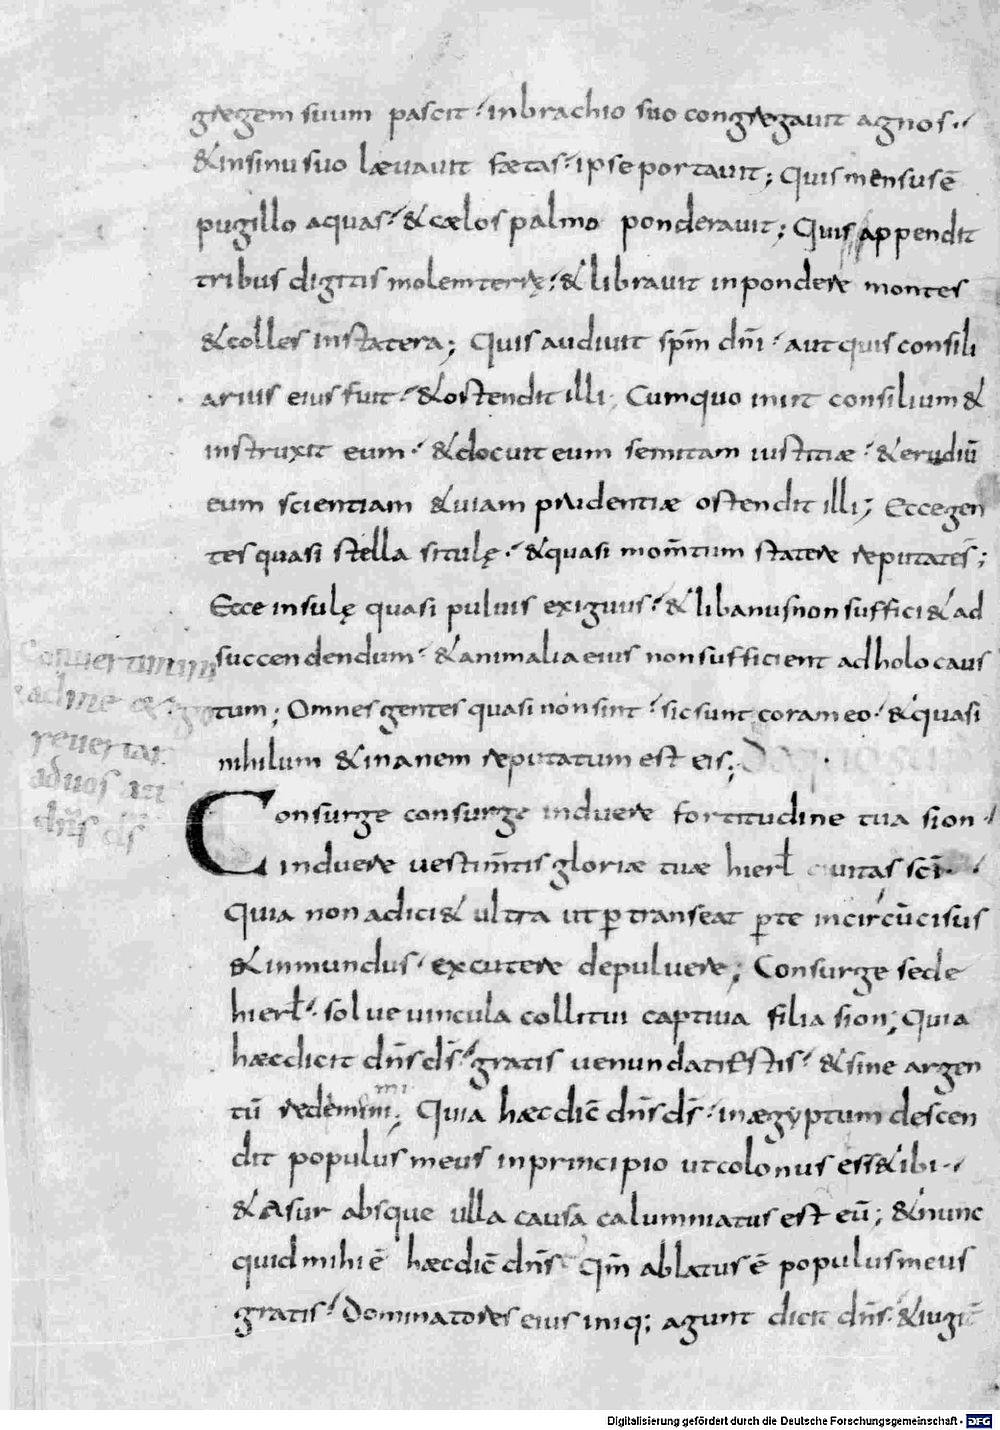 gregem suum pascit inbrachio suo congregauit agnos
&insinu suo læuauit fætas ipse portauit; Quis mensus ē
pugillo aquas & cælos palmo ponderauit; Quis appendit
tribus digitis molem terrę & librauit inpondere montes
& colles instatera; Quis audiuit sp̄m dn̄i aut quis consili
arius eius fuit & ostendit illi; Cumquo iniit consilium &
instruxit eum & docuit eum semitam iustitiæ & erudiū
eum scientiam & uiam prudentiæ ostendit illi; Ecce gen
tes quasi stella situlę & quasi mom̄tum statere reputatęs̄;
Ecce insulę quasi puluis exiguus & libanus non suffici& ad
succendendum & animalia eius non sufficient ad holocaus
tum; Omnes gentes quasi non sint sic sunt coram eo & quasi
nihilum & inanem reputatum est eis;
Conuertimini
adme &ego
reuertar
aduos ait
dn̄s ds̄
Consurge consurge induere fortitudine tua sion
induere uestim̄tis gloriæ tuæ hierl̄ ciuitas sc̄i
Quia non adici& ultra ut ꝑtranseat ꝑte incircūcisus
& inmundus excutere depuluere; Consurge sede
hierl̄ solue uincula colli tui captiua filia sion; Quia
hæc dicit dn̄s ds̄ gratis uenundati estis & sine argen
tū redemimini; Quia hæc dic̄ dn̄s ds̄ inægyptum descen
dit populus meus inprincipio ut colonus ess& ibi
& Asur absque ulla causa calumniatus est eū; & nunc
quid mihi ē hæc dic̄ dn̄s Qm̄ ablatus ē populus meus
gratis Dominatores eius iniq; agunt dicit dn̄s & iugit̄